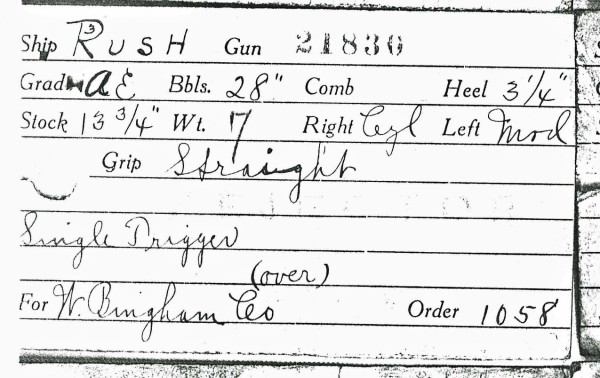 Ship RUSH Gun 21830
Grade AE Bbls. 28" Comb Heel 3 1/4"
Stock 13 3/4" Wt. 7 Right Cyl Left Mod
Grip Straight
Single Trigger
(over)
For W. Bingham Co Order 1058